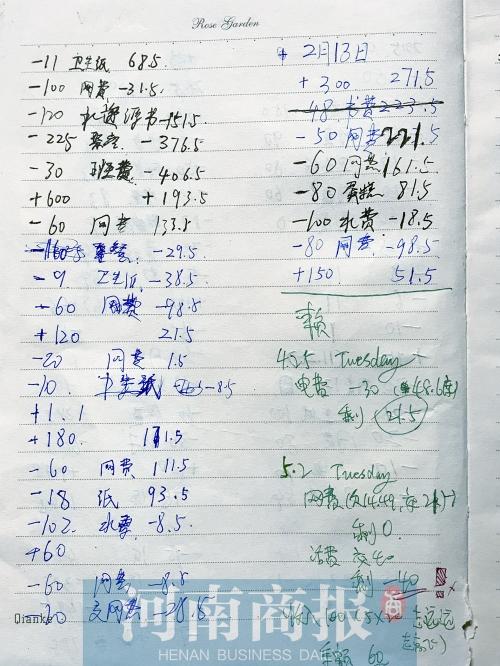 Rose Garden
-11 卫生纸 68.5
-100 网费 -31.5.
-120 -151.5
-225 聚餐 -376.5
-30 班费 -406.5
+600 +193.5
-60 网费 133.5
聚餐 -29.5
-9 卫生纸 -38.5
+60 网费 -98.5
+120 21.5
-20 网费 1.5
-10. 卫生纸 -8.5
+1.1
+180. 171.5
-60 网费 111.5
-18 纸 93.5
-102 水费 -8.5.
+60
-60 网费 -8.5
-20 交网费 -28.5
2月13日
+300 271.5
-48 书费 223.5
-50 网费 221.5
-60 网费 161.5
-80 蛋糕 81.5
-100 水费 -18.5
-80 网费 -98.5
+150 51.5
余额
4.25 Tuesday
电费 -30 (48.6度)
剩 21.5
5.2 Tuesday
网费
剩 0
话费 交40
剩 -40
余额 60
Qianke
河南商报
HENAN BUSINESS DAILY